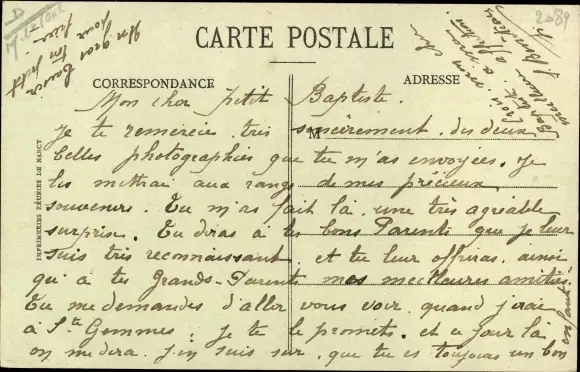 CARTE POSTALE
CORRESPONDANCE
ADRESSE
Mon cher petit Baptiste.
Je te remercie très sincèrement des deux
M
belles photographies que tu m'as envoyées. Je
les mettrai aux rangs de mes précieux
souvenirs. Tu m'as fait là une très agréable
surprise. Tu diras à tes bons Parents que je leur
suis très reconnaissant et tu leur offriras ainsi
qu'à tes Grands-Parents mes meilleures amitiés.
Tu me demandes d'aller vous voir, quand j'irai
à Ste Gemmes; je te le promets. et ce jour là
on me dira, j'en suis sur, que tu es toujours un bon
enfant.
mon cher
Baptiste
à mon
affection.
Un gros baiser
pour ton petit
frère
IMPRIMERIES RÉUNIES DE NANCY
2089